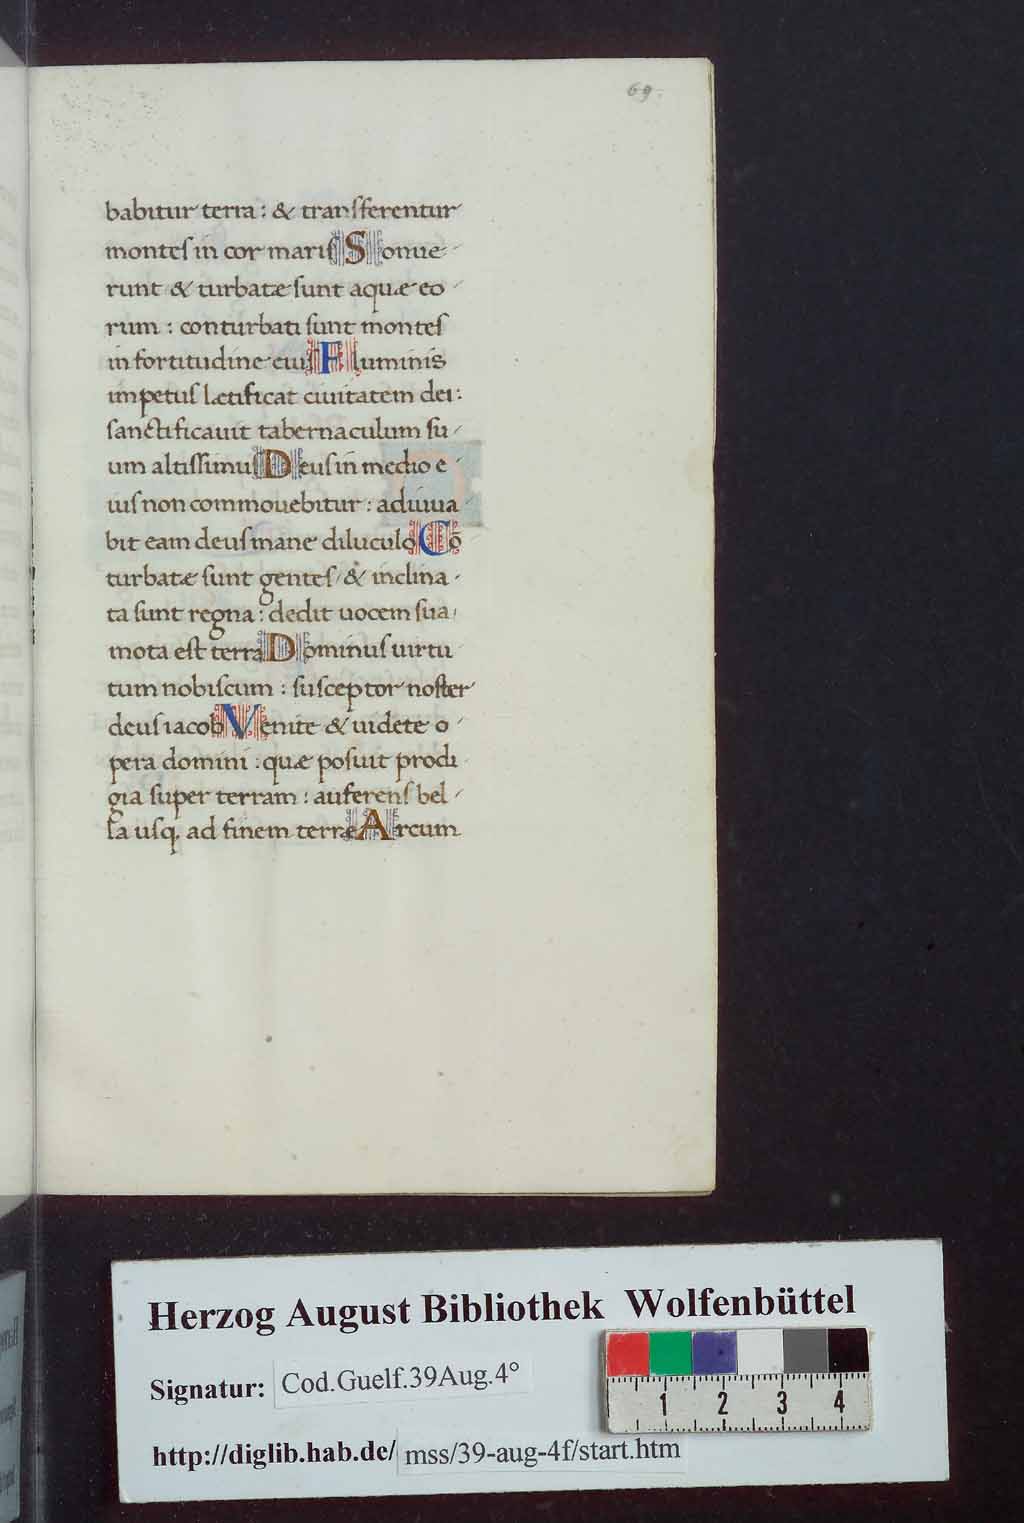 69.
babitur terra : & transferentur
montes in cor maris Sonue
runt & turbatæ sunt aquæ eo
rum : conturbati sunt montes
in fortitudine eius Fluminis
impetus lætificat ciuitatem dei :
sanctificauit tabernaculum su
um altissimus Deus in medio e
ius non commouebitur : adiuua
bit eam deus mane diluculo Cō
turbatæ sunt gentes / & inclina
ta sunt regna : dedit uocem sua
mota est terra Dominus uirtu
tum nobiscum : susceptor noster
deus iacob Venite & uidete o
pera domini : quæ posuit prodi
gia super terram : auferens bel
la usq. ad finem terræ Arcum
Herzog August Bibliothek Wolfenbüttel
Signatur: Cod.Guelf.39Aug.4°
http://diglib.hab.de/ mss/39-aug-4f/start.htm
1 2 3 4